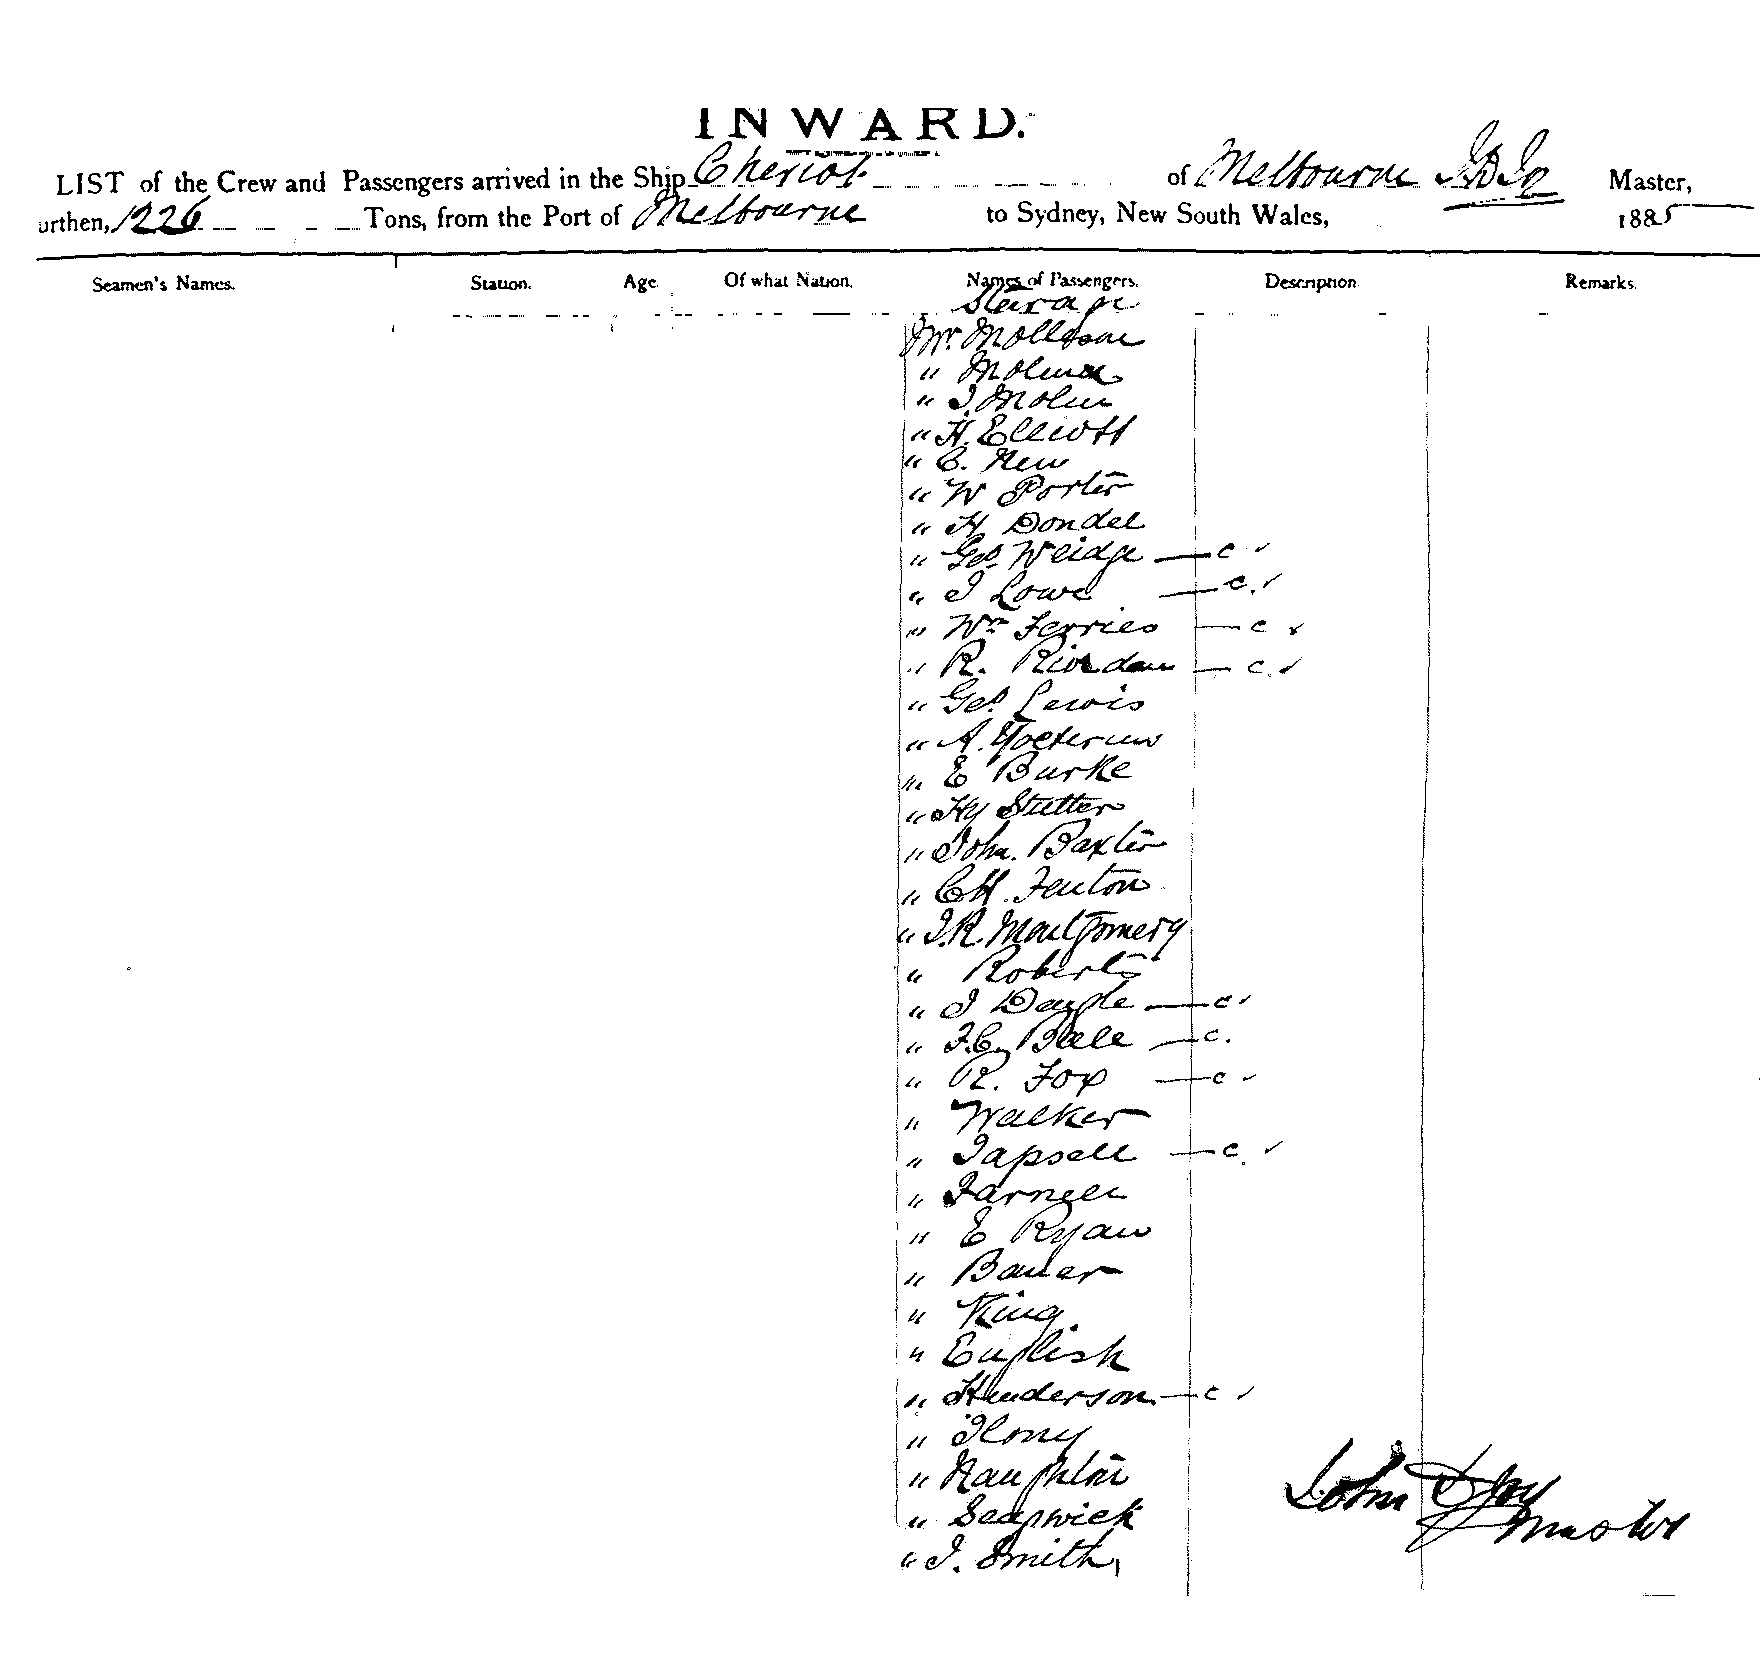 INWARD.
LIST of the Crew and Passengers arrived in the Ship Cheviot of Melbourne Master,
urthen, 1226 Tons, from the Port of Melbourne to Sydney, New South Wales, 1885
Seamen's Names. Station. Age Of what Nation. Names of Passengers. Description Remarks.
Mr.
"
" J.
" H. Elliott
" C. New
" W Porter
" H Dondel
" Geo. Weidge — c
" J Lowe — c.
" Wm Ferries — c
" R. Riordan — c.
" Geo. Lewis
" A.
" E Burke
" Hy Stutter
" John. Baxter
" C H. Fenton
" J.R. Montgomery
" Roberts
" J — c
" — c.
" R. Fox — c
" Walker
" Tapsell — c.
" Farnell
" E Ryan
" Bauer
" King
" English
" Henderson — c
"
" Naughton
" Sedgwick
" J. Smith
John
Master